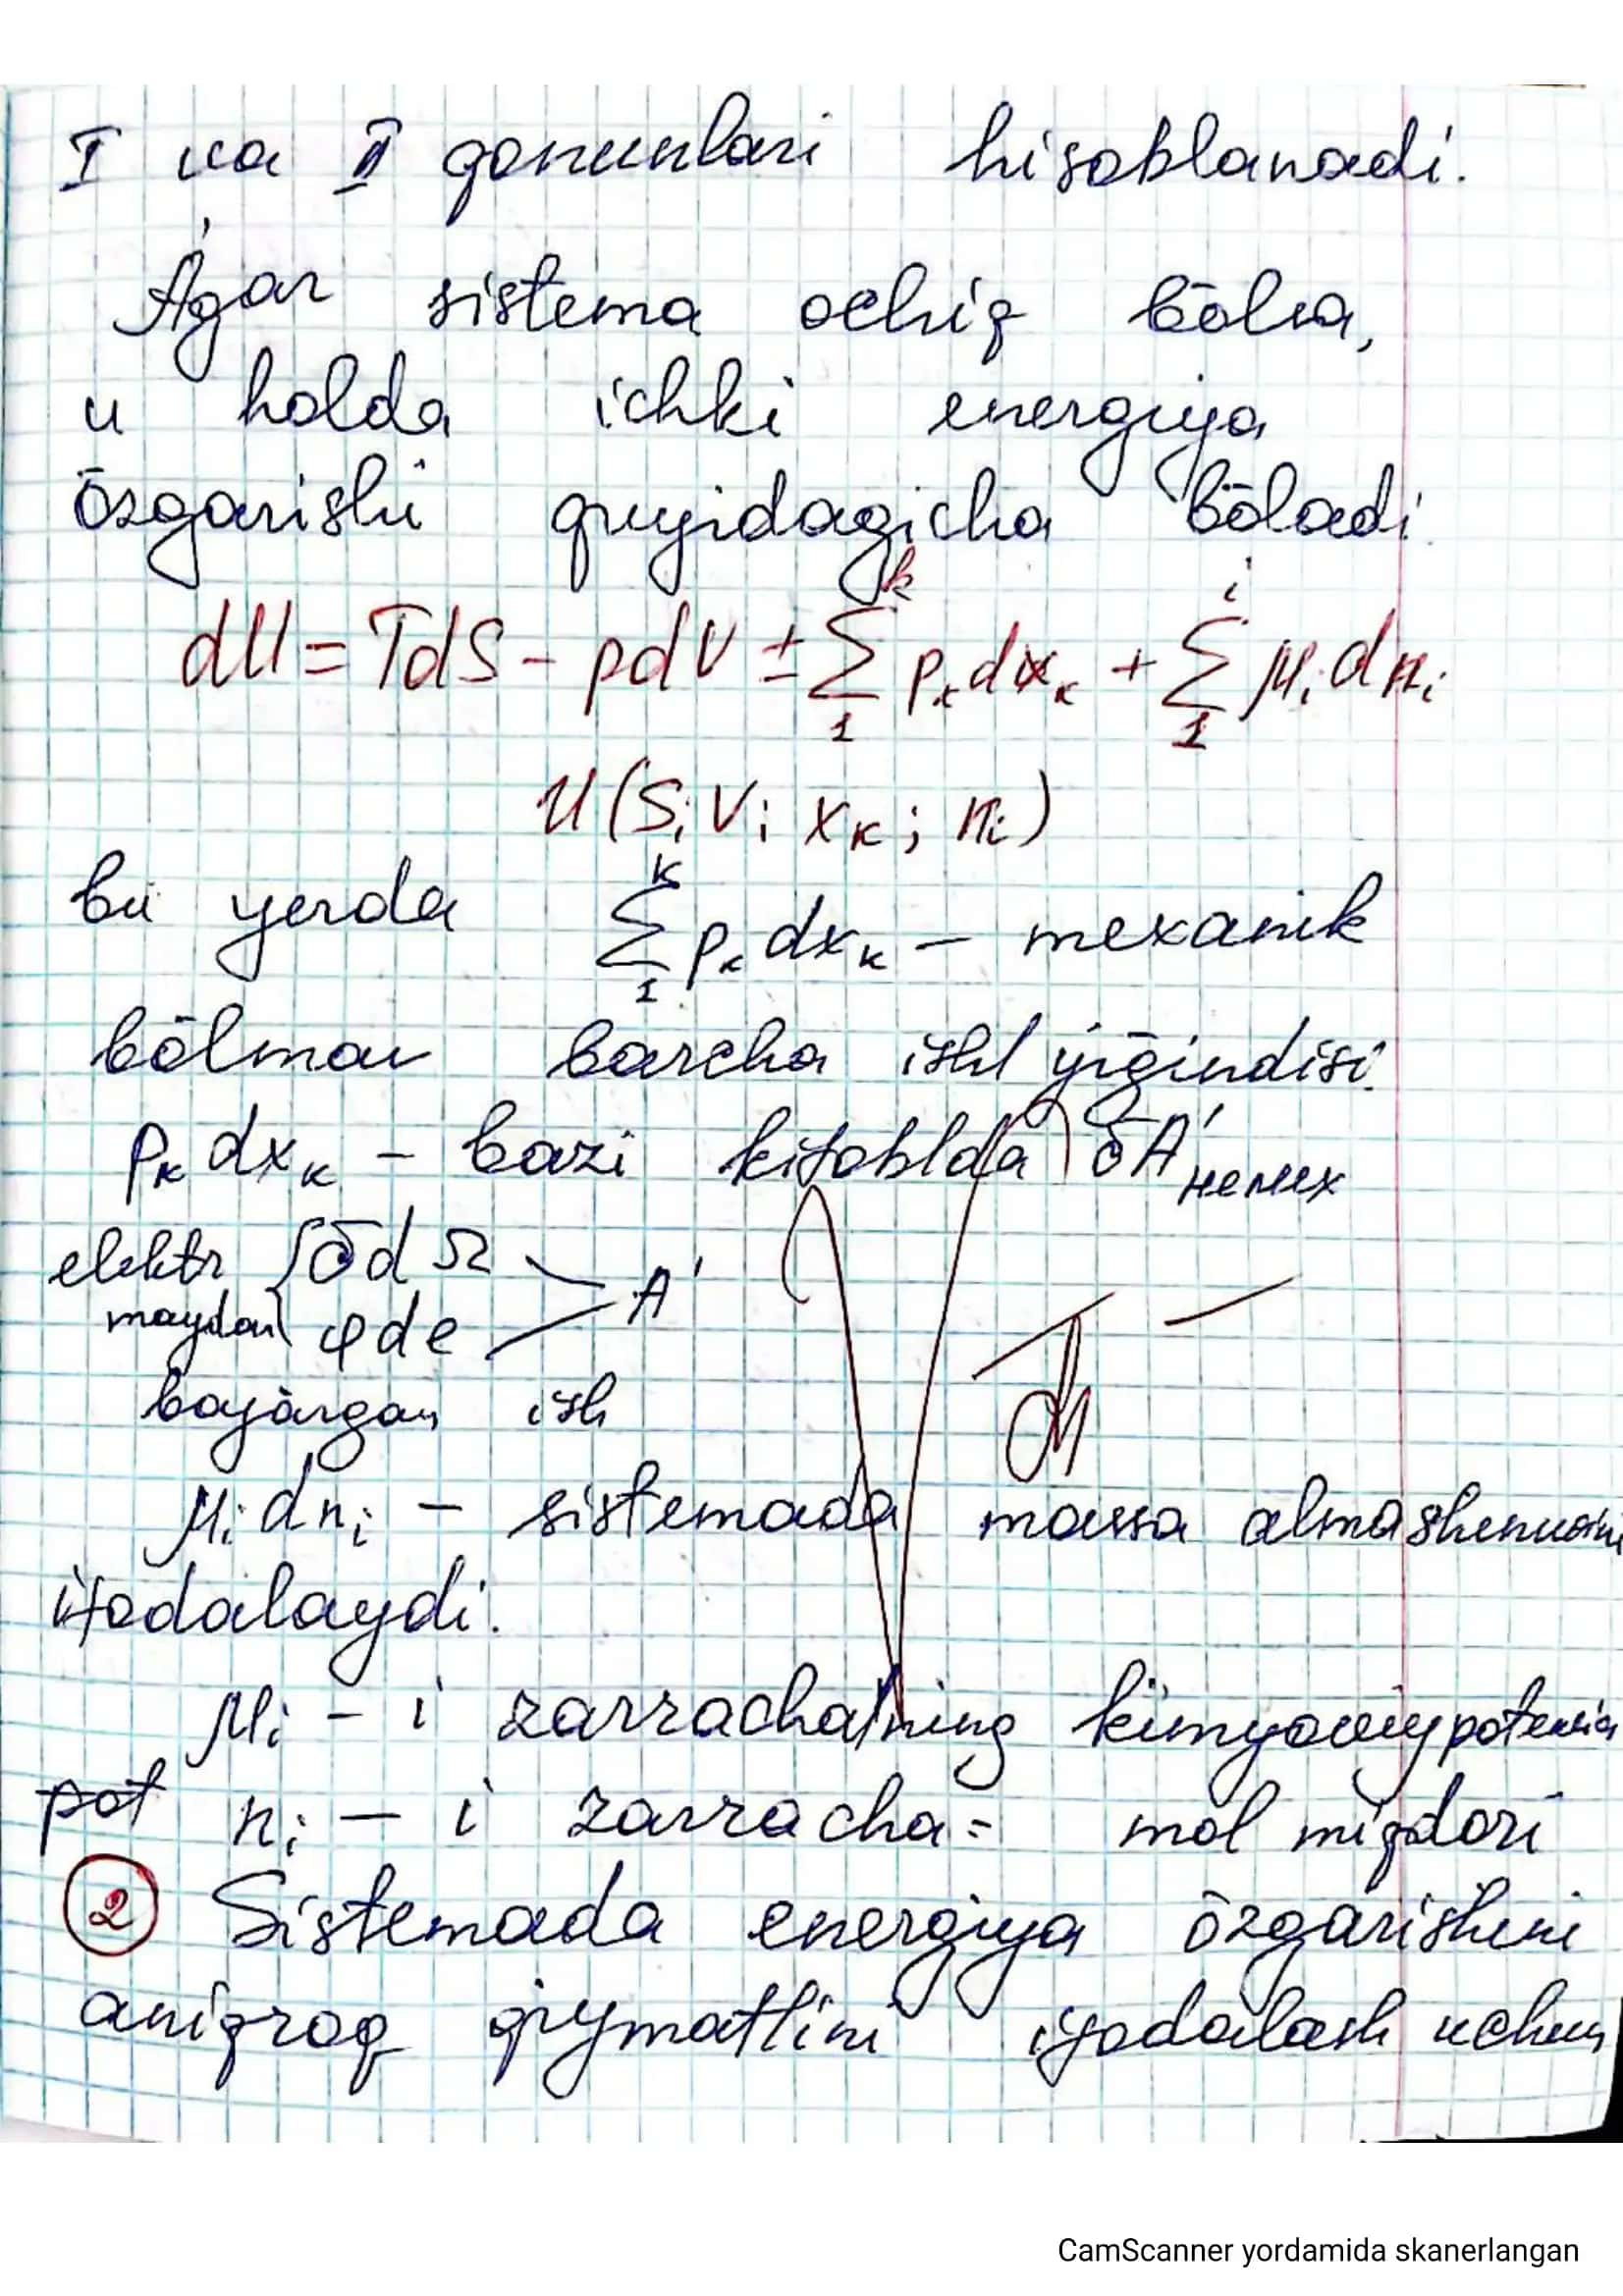 I va II qonunlari hisoblanadi.
Agar sistema ochiq bōlsa,
u holda ichki energiya
ōzgarishi quyidagicha bōladi.
dU = TdS - pdV ± ∑₁ᵏ pₖdxₖ + ∑₁ⁱ μᵢdnᵢ
U(S; V; xₖ; nᵢ)
bu yerda ∑₁ᴷ pₖdxₖ – mexanik
bōlmau barcha ishl yiḡindisi.
pₖdxₖ – bazi kitoblda δA'немех
elektr { σdΩ
maydon φde > A'
bajargan ish
μᵢdnᵢ – sistemada massa almashenuvini
ifodalaydi.
μᵢ – i zarrachalning kimyoviy
pot nᵢ – i zarracha= mol miqdori
2 Sistemada energiya ōzgarishini
aniqroq qiymatlini ifodalash uchun
CamScanner yordamida skanerlangan